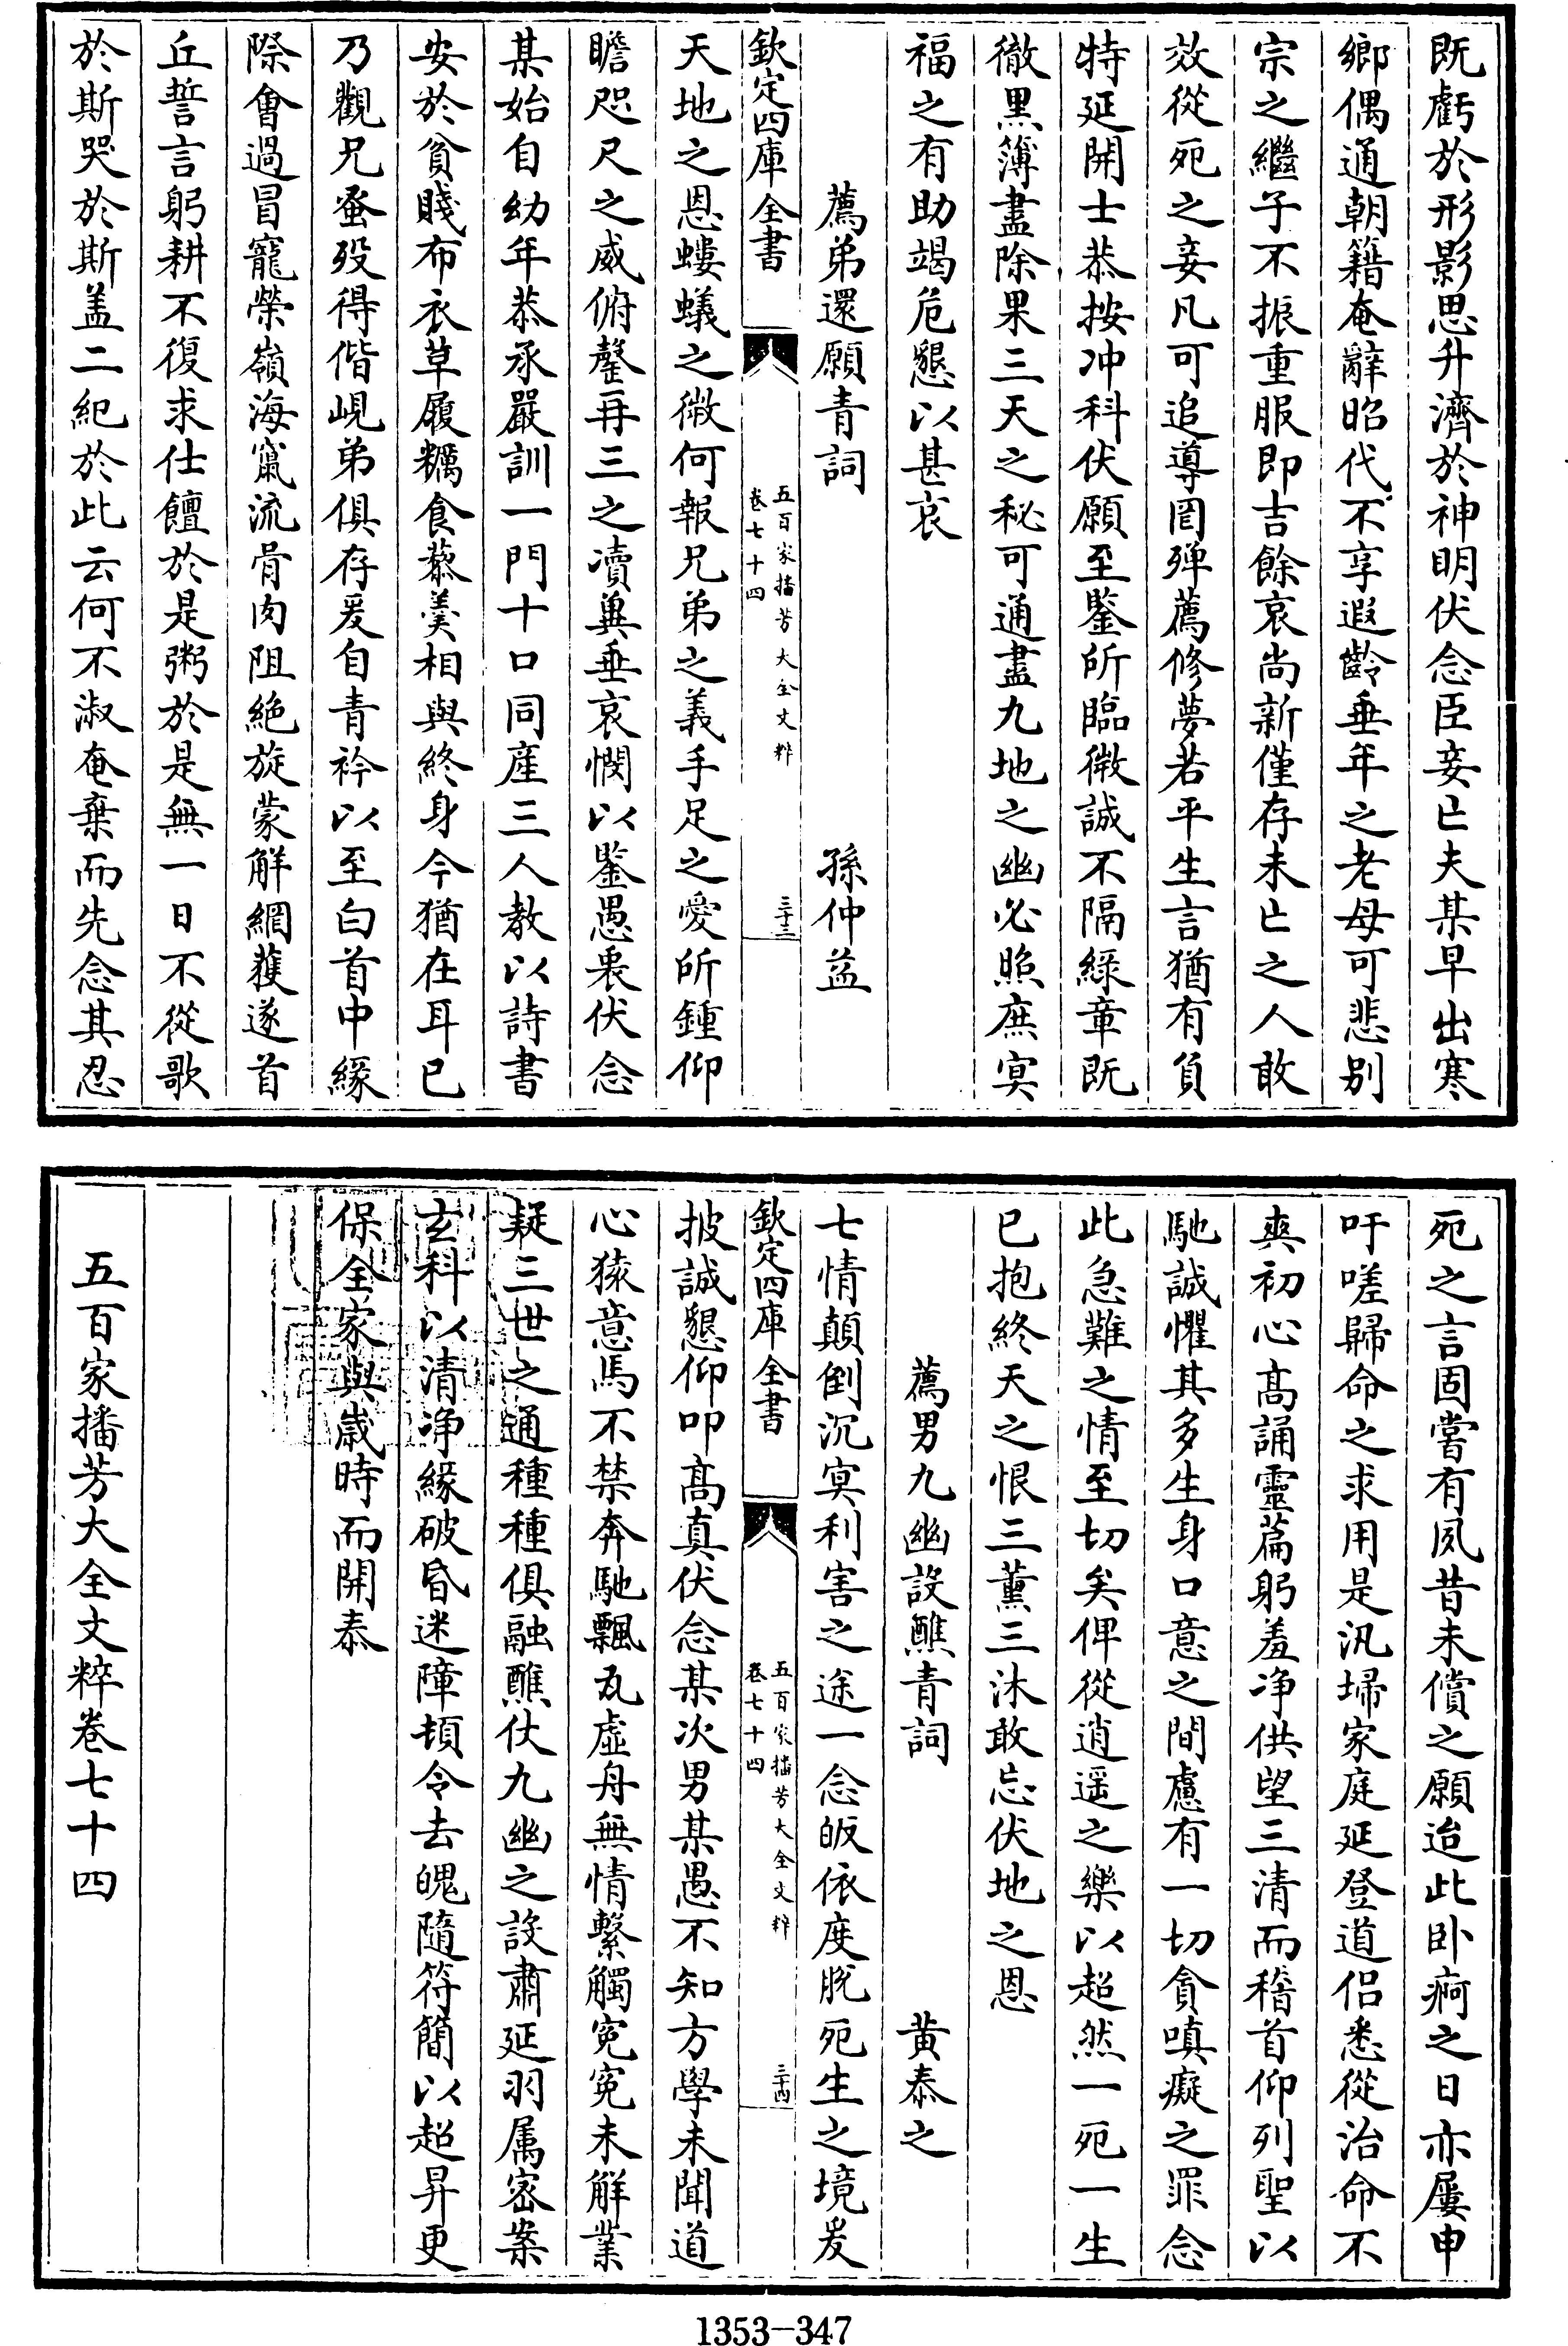 既虧於形影思升濟於神明伏念臣妾亡夫某早出寒
鄉偶通朝籍奄辭昭代不享遐齡垂年之老母可悲别
宗之繼子不振重服即吉餘哀尚新僅存未亡之人敢
效從死之妾凡可追導罔殫薦修夢若平生言猶有負
特延開士恭按冲科伏願至鑒所臨微誠不隔緑章既
徹黒簿盡除果三天之秘可通盡九地之幽必照庶冥
福之有助竭危懇以甚哀
薦弟還願青詞 孫仲益
欽定四庫全書 五百家播芳大全文粹 卷七十四 三十三
天地之恩螻蟻之微何報兄弟之義手足之愛所鍾仰
瞻咫尺之威俯罄再三之凟兾垂哀憫以鑒愚衷伏念
某始自幼年恭承嚴訓一門十口同産三人教以詩書
安於貧賤布衣草履糲食藜羮相與終身今猶在耳已
乃觀兄蚤殁得偕峴弟俱存爰自青衿以至白首中縁
際會過冒寵榮嶺海竄流骨肉阻絶旋蒙解網獲遂首
丘誓言躬耕不復求仕饘於是粥於是無一日不從歌
於斯哭於斯盖二紀於此云何不淑奄棄而先念其忍
死之言固嘗有夙昔未償之願迨此卧痾之日亦屢申
吁嗟歸命之求用是汛埽家庭延登道侣悉從治命不
爽初心髙誦靈篇躬羞净供望三清而稽首仰列聖以
馳誠懼其多生身口意之間慮有一切貪嗔癡之罪念
此急難之情至切矣俾從逍遥之樂以超然一死一生
已抱終天之恨三薫三沐敢忘伏地之恩
薦男九幽設醮青詞 黄泰之
七情顛倒沉冥利害之途一念皈依度脱死生之境爰
欽定四庫全書 五百家播芳大全文粹 卷七十四 三十四
披誠懇仰叩髙真伏念某次男某愚不知方學未聞道
心猿意馬不禁奔馳飄瓦虚舟無情繫觸寃寃未解業
疑三世之通種種俱融醮仗九幽之設肅延羽属宻案
玄科以清净緣破昏迷障頓令去魄隨符簡以超昇更
保全家與嵗時而開泰
五百家播芳大全文粹卷七十四
1353-347